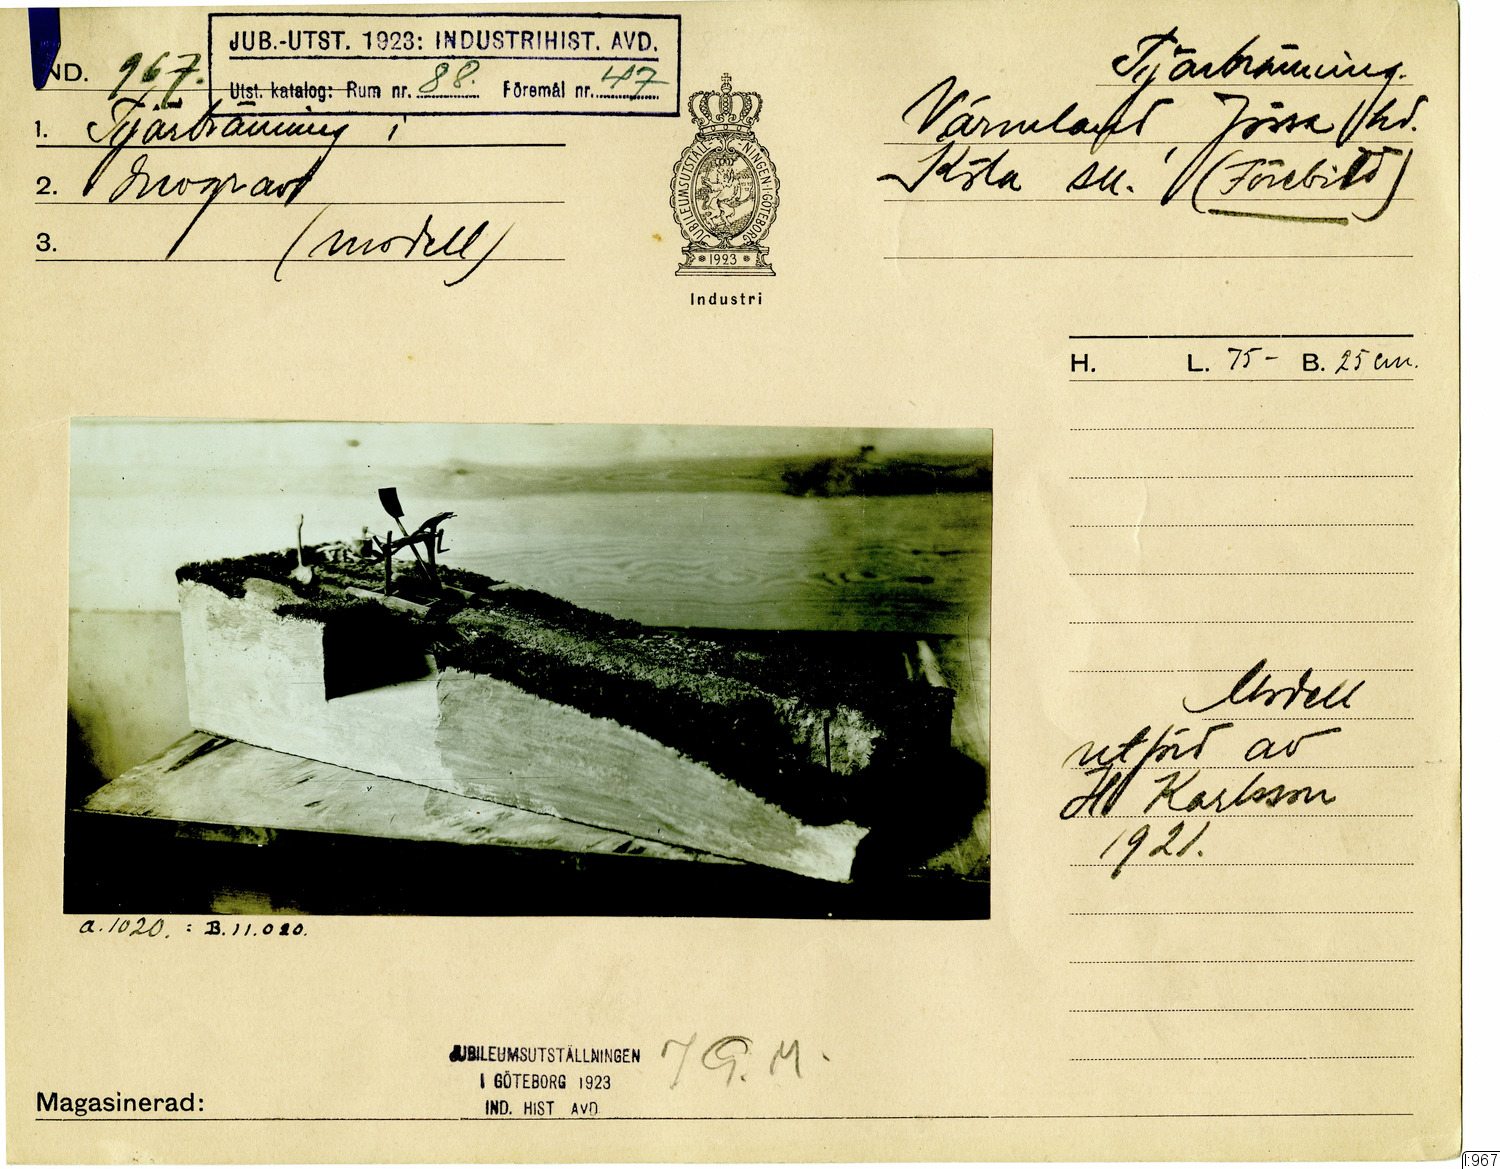 JUB.-UTST. 1923: INDUSTRIHIST. AVD.
Utst. katalog: Rum nr. 88 Föremål nr. 47
IND. 967.
1. Tjärbränning i
2.
3. (modell)
JUBILEUMSUTSTÄLL-NINGEN I GÖTEBORG
1923
Industri
Tjärbränning.
Värmland, Jösse hd.
Köla sn. (Förebild)
H. L. 75- B. 25 cm.
Modell
utförd av
H Karlsson
1921.
a.1020. : B.11.020.
JUBILEUMSUTSTÄLLNINGEN
I GÖTEBORG 1923
IND. HIST AVD
I G. M.
Magasinerad:
I:967